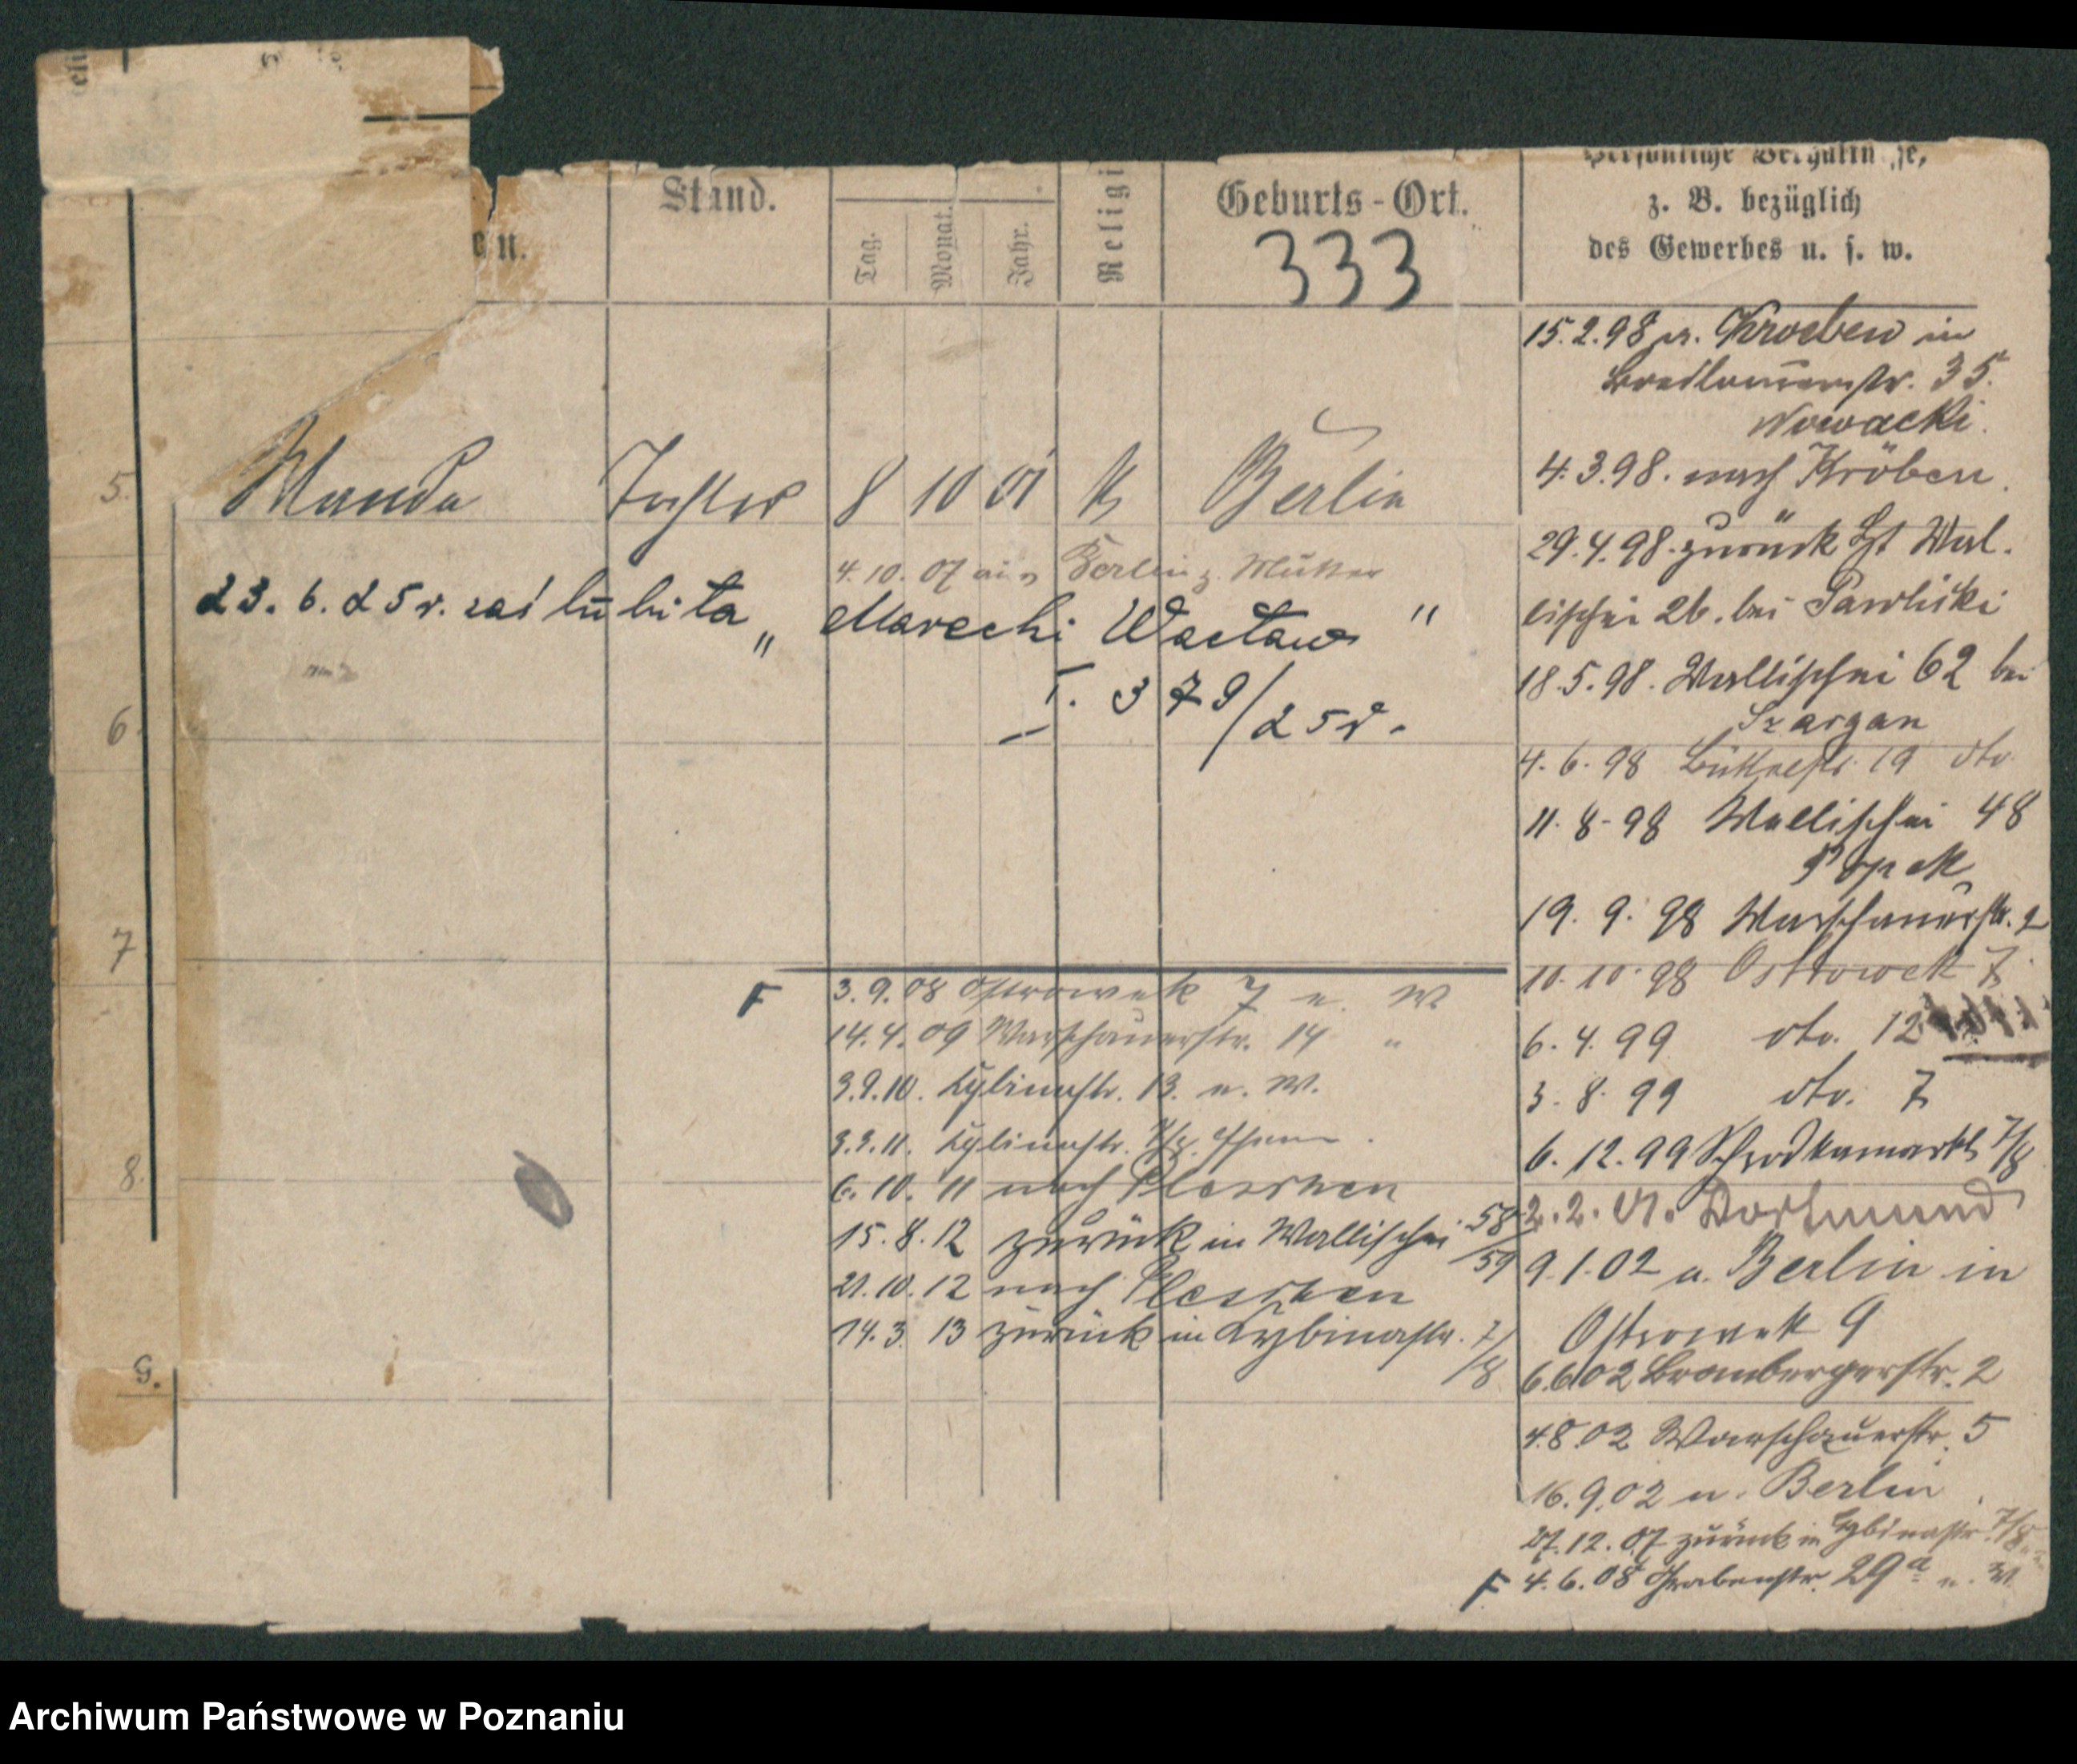 Stand.
Tag.
Monat.
Jahr.
Religi
Geburts-Ort.
333
z. B. bezüglich
des Gewerbes u. s. w.
5.
Wanda Tochter 8 10 01 K Berlin
4.10.07 aus Berlin z. Mutter
23. 6. 25 r. zaślubiła „Marecki Wacław"
I. 379/25 r.
6.
7
8.
9.
F 3.9.08 Ostrowek 7 n. W.
14.4.09 Warschauerstr. 14 "
3.9.10. Cybinastr. 13. n. W.
3.3.11. Cybinastr. 7/8
6.10.11 nach Pleschen
15.8.12 zurück in Wallischei 58/59
21.10.12 nach Pleschen
14.3.13 zurück in Cybinastr. 7/8
15.2.98 a. Kroeben in
Breslauerstr. 35.
Nowacki.
4.3.98. nach Kröben.
29.4.98. zurück Wal-
lischei 26. bei Pawlicki
18.5.98. Wallischei 62 bei
Szargan
4.6.98 Büttelstr. 19 dto.
11.8.98 Wallischei 48
Popek
19.9.98 Warschauerstr. 2
10.10.98 Ostrowek 7.
6.4.99 dto. 12
3.8.99 dto. 7
6.12.99 Schrodkamarkt 7/8
2.2.01. Dortmund
9.1.02 a. Berlin in
Ostrowek 9
6.6.02 Brombergerstr. 2
4.8.02 Warschauerstr. 5
16.9.02 n. Berlin
27.12.07 zurück in Cybinastr. 7/8
F 4.6.08 Grabenstr. 29a n. W.
Archiwum Państwowe w Poznaniu